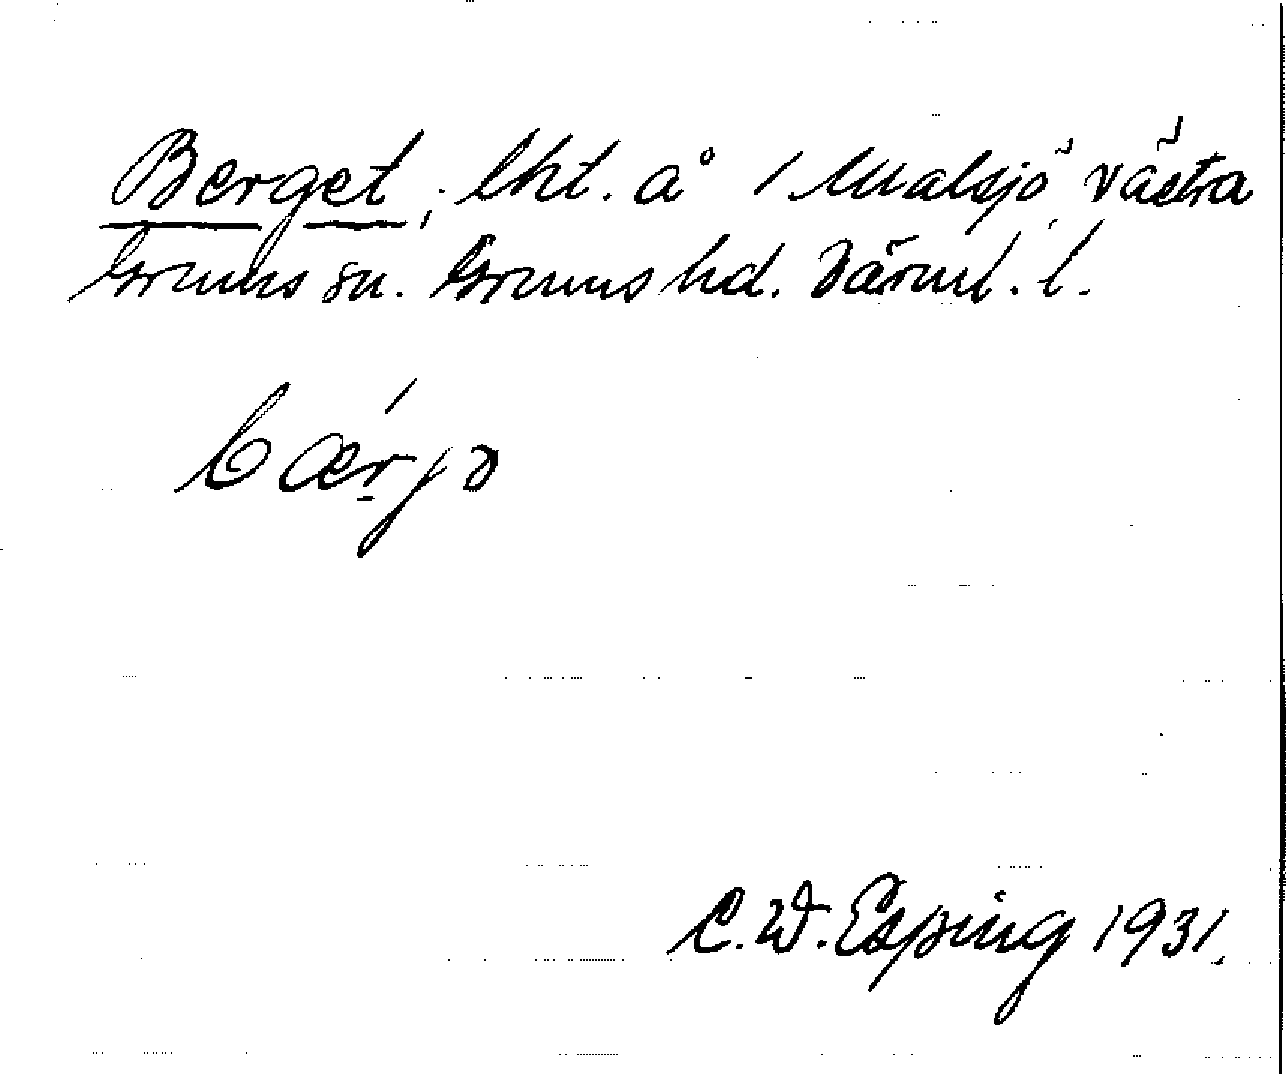 Berget, lht. å 1 Malsjö västra
Grums sn. Grums hd. Värml. l.
bær̠´jə
C. W. Esping 1931.